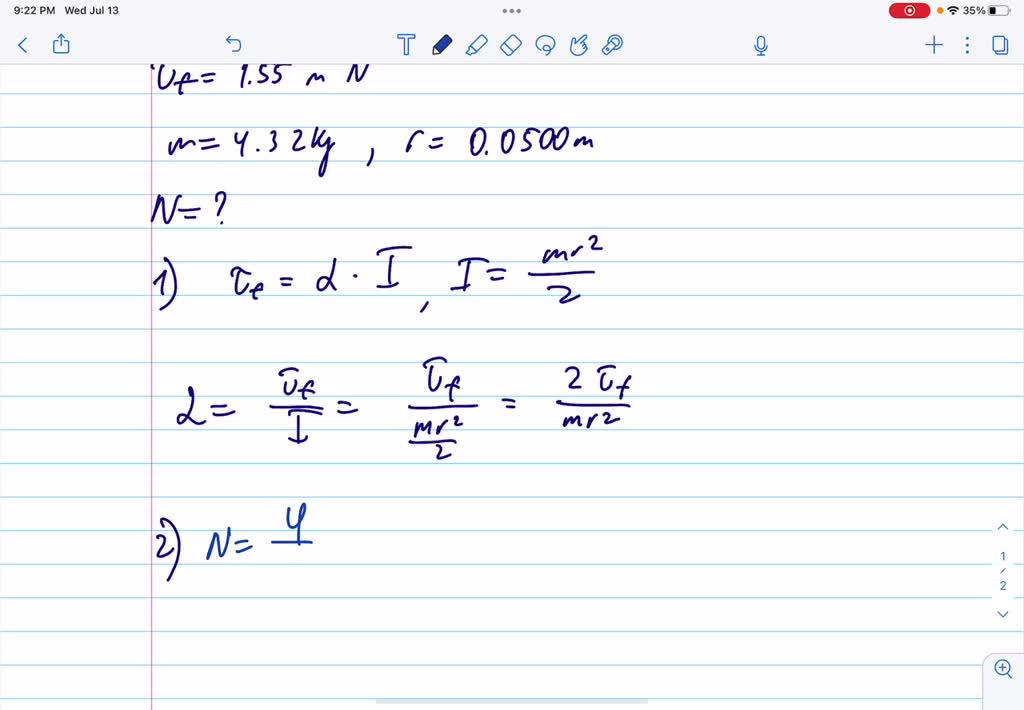 9:22 PM Wed Jul 13
35%
T
τf = 1.55 m N
m = 4.32 kg , r = 0.0500 m
N = ?
1) τf = α · I , I = mr²/2
α = τf/I = τf/(mr²/2) = 2τf/mr²
2) N = φ/
1
/
2